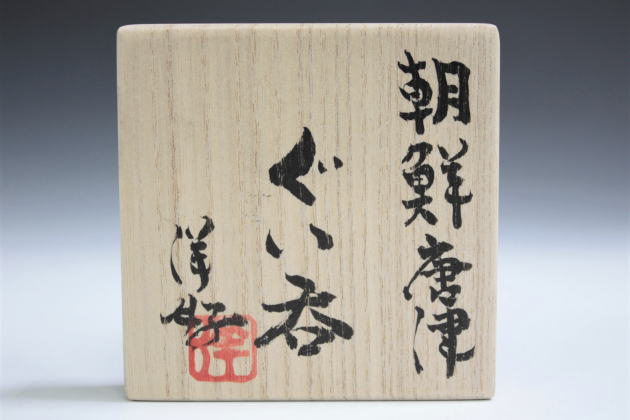 朝鮮唐津
ぐい呑
洋好